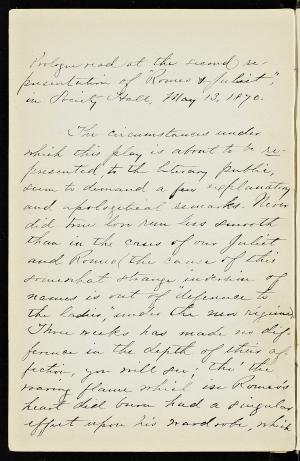 Prologue read at the second re-
presentation of "Romeo & Juliet",
in Society Hall, May 13, 1870.
The circumstances under
which this play is about to be re-
presented, to the literary public,
seem to demand a few explanatory
and apologetical remarks. Never
did true love run less smooth
than in the case of our Juliet
and Romeo (the cause of this
somewhat strange inversion of
names is out of deference to
the ladies, under the new regime)
Three weeks has made no dif-
ference in the depth of their af-
fection, you will see, tho' the
roaring flame which in Romeo's
heart did burn had a singular
effect upon his wardrobe, which